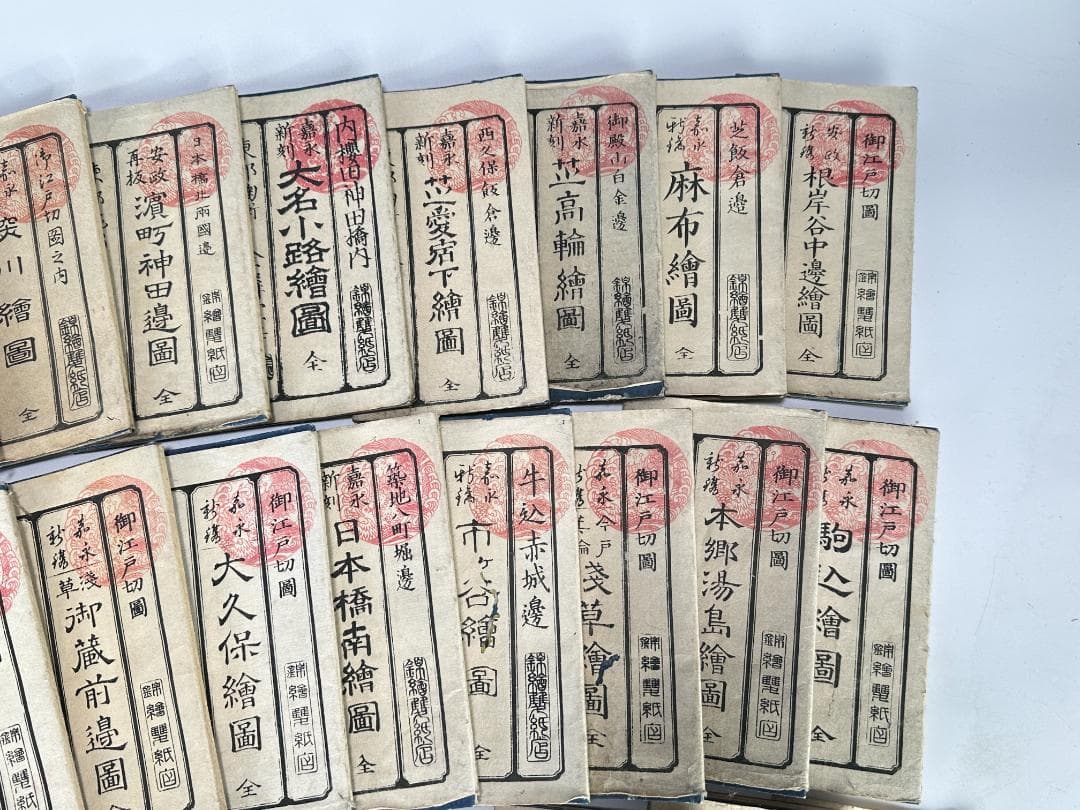 御江戸切圖
錦繪雙紙店
安政
新鐫
根岸谷中邊繪圖
全
芝飯倉邊
錦繪雙紙店
嘉永
新鐫
麻布繪圖
全
御殿山白金邊
錦繪雙紙店
嘉永
新刻
芝高輪繪圖
全
西久保飯倉邊
錦繪雙紙店
嘉永
新刻
芝愛宕下繪圖
全
内櫻田神田橋内
錦繪雙紙店
嘉永
新刻
大名小路繪圖
全
日本橋北兩國邊
錦繪雙紙店
安政
再板
濱町神田邊圖
全
御江戸切圖之内
錦繪雙紙店
嘉永
川繪圖
全
御江戸切圖
錦繪雙紙店
嘉永
新鐫
駒込繪圖
全
御江戸切圖
錦繪雙紙店
嘉永
新鐫
本郷湯島繪圖
全
御江戸切圖
錦繪雙紙店
嘉永
新鐫
今戸
淺草繪圖
全
牛込赤城邊
錦繪雙紙店
嘉永
新鐫
市ヶ谷繪圖
全
築地八町堀邊
錦繪雙紙店
嘉永
新刻
日本橋南繪圖
全
御江戸切圖
錦繪雙紙店
嘉永
新鐫
大久保繪圖
全
御江戸切圖
錦繪雙紙店
嘉永
新鐫
淺草
御蔵前邊圖
全